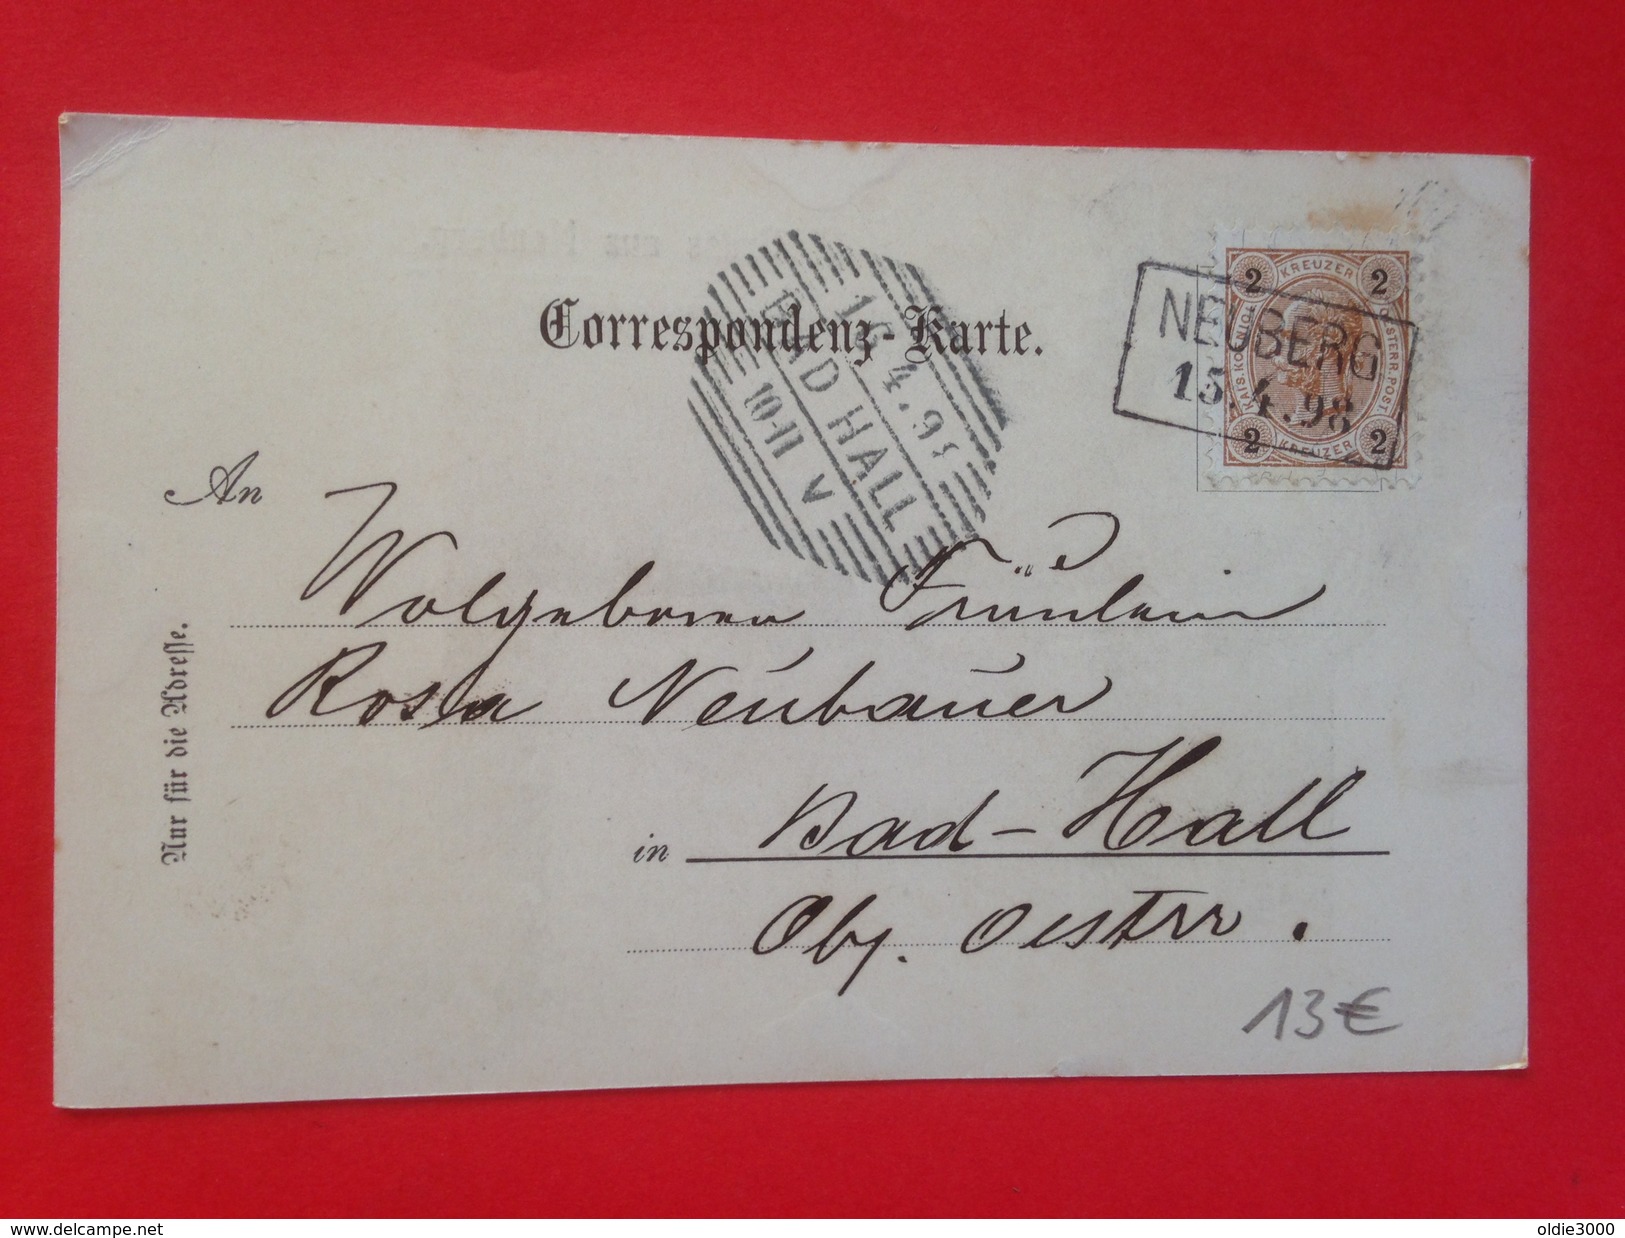 Correspondenz-Karte.
16.4.98
BAD HALL
10-11 V
2 KREUZER 2
KAIS. KÖNIGL. OESTERR. POST
2 KREUZER 2
NEUBERG
15.4.98
An
Wolgeboren Fräulein
Rosa Neubauer
in Bad-Hall
Obj. Oestrr.
Nur für die Adresse.
13€
delcampe.net
oldie3000